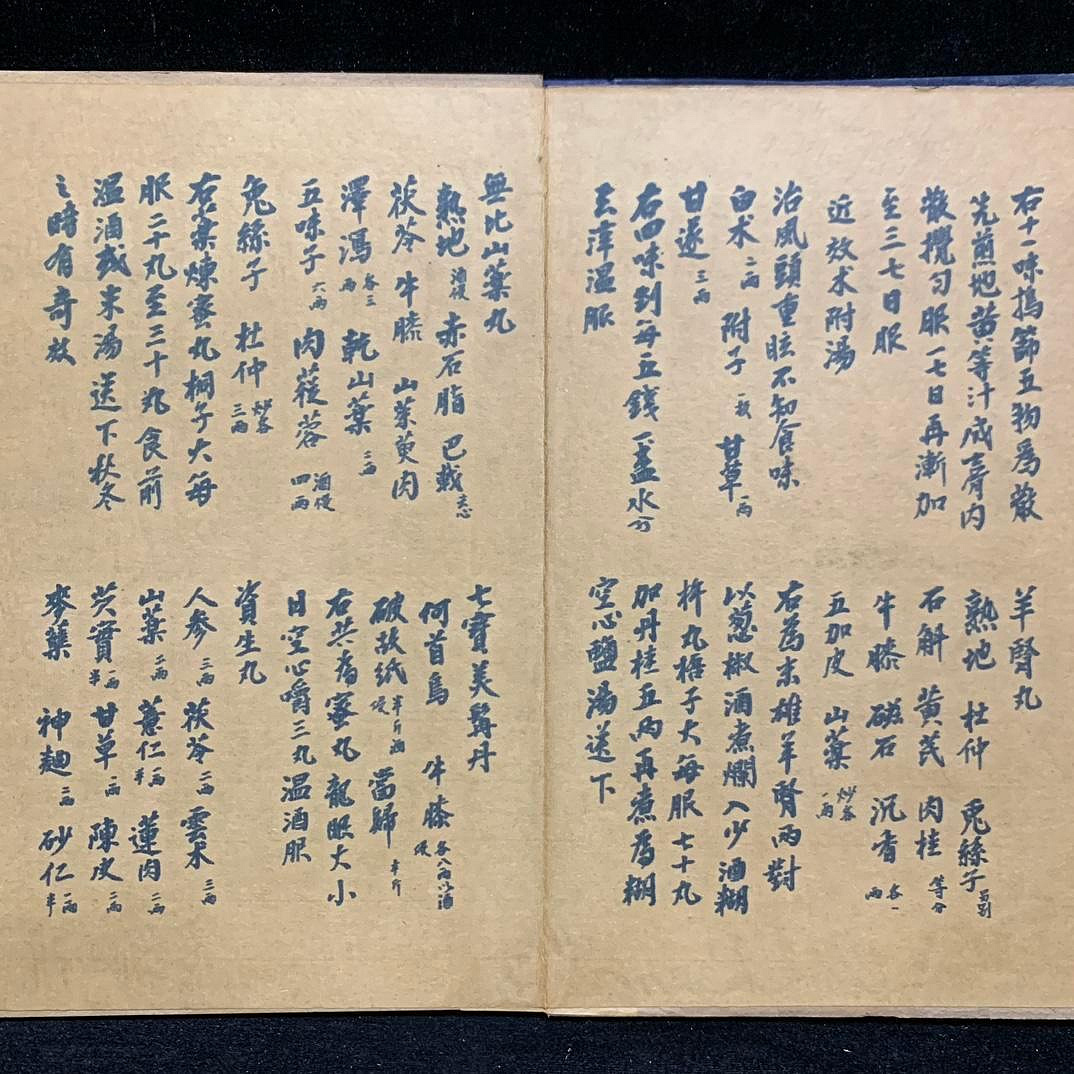 右十一味搗篩五物為散
先煎地黃等汁成膏內
散攪勻服一七日再漸加
至三七日服
近效朮附湯
治風頭重眩不知食味
白术二兩 附子一枚 甘草一兩
甘遂三兩
右四味剉每五錢 盞水
溫服
羊腎丸
熟地 杜仲 兎絲子另剉
石斛 黃芪 肉桂等分
牛膝 磁石 沉香各一兩
五加皮 山藥炒各一兩
右為末雄羊腎兩對
以葱椒酒煮爛入少酒糊
杵丸梧子大每服七十丸
加丹桂五兩再煮為糊
空心鹽湯送下
無比山藥丸
熟地酒浸 赤石脂 巴戟去心
茯苓 牛膝 山茱萸肉
澤瀉各三兩 乾山藥三兩
五味子六兩 肉蓯蓉酒浸四兩
兎絲子 杜仲炒各三兩
右末煉蜜丸桐子大每
服二十丸至三十丸食前
溫酒或米湯送下秋冬
之時有奇效
七寶美髯丹
何首烏 牛膝各八兩以酒浸
破故紙半斤酒浸 當歸半斤
右共為蜜丸龍眼大小
日空心嚼三丸溫酒服
資生丸
人參三兩 茯苓二兩 雲术三兩
山藥二兩 薏仁一兩半 蓮肉二兩
芡實一兩半 甘草一兩 陳皮二兩
麥蘖 神麯二兩 砂仁一兩半